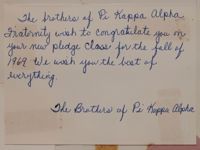 The brothers of Pi Kappa Alpha
Fraternity wish to congratulate you on
your new pledge class for the fall of
1969. We wish you the best of
everything.
The Brothers of Pi Kappa Alpha